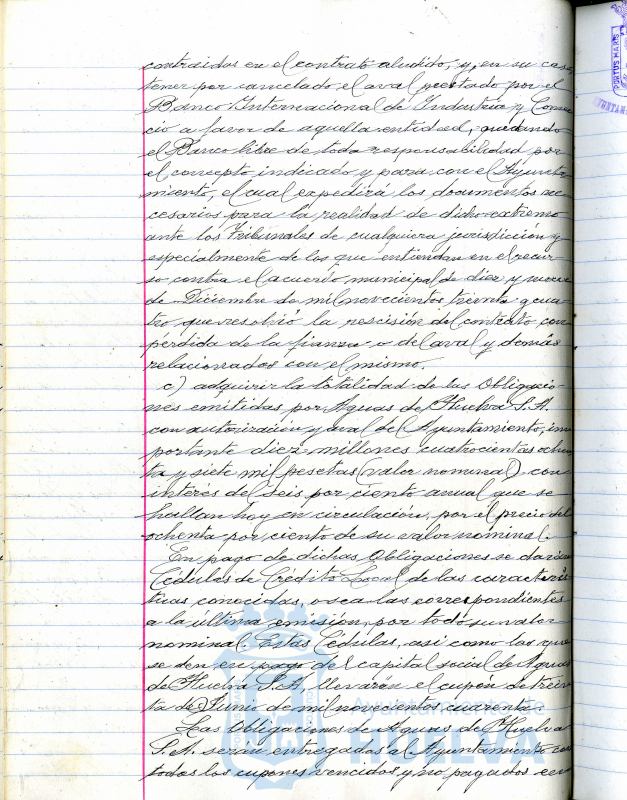 contraidos en el contrato aludido, y, en su caso,
tener por cancelado el aval prestado por el
Banco Internacional de Industria y Comer
cio a favor de aquella entidad, quedando
el Banco libre de toda responsabilidad por
el concepto indicado y para con el Ayunta
miento, el cual expedirá los documentos ne
cesarios para la realidad de dicho extremo
ante los Tribunales de cualquiera jurisdicción y
especialmente de los que entiendan en el recur
so contra el acuerdo municipal de diez y nueve
de Diciembre de mil novecientos treinta y cua
tro que resolvió la rescisión del contrato con
pérdida de la fianza o del aval y demás
relacionados con el mismo.
c) adquirir la totalidad de las Obligacio
nes emitidas por Aguas de Huelva S.A.
con autorización y aval del Ayuntamiento, im
portante diez millones cuatrocientas ochen
ta y siete mil pesetas (valor nominal) con
interés del seis por ciento anual que se
hallan hoy en circulación, por el precio del
ochenta por ciento de su valor nominal.
En pago de dichas Obligaciones se darán
Cédulas de Crédito Local de las caracterís
ticas conocidas, o sea las correspondientes
a la última emisión, por todo su valor
nominal. Estas Cédulas, asi como las que
se den en pago del capital social de Aguas
de Huelva S.A. llevarán el cupón de trein
ta de Junio de mil novecientos cuarenta.
Las Obligaciones de Aguas de Huelva
S.A. serán entregadas al Ayuntamiento con
todos los cupones vencidos y no pagados con
PORTUS MARIS
Ayuntamiento de
HUELVA